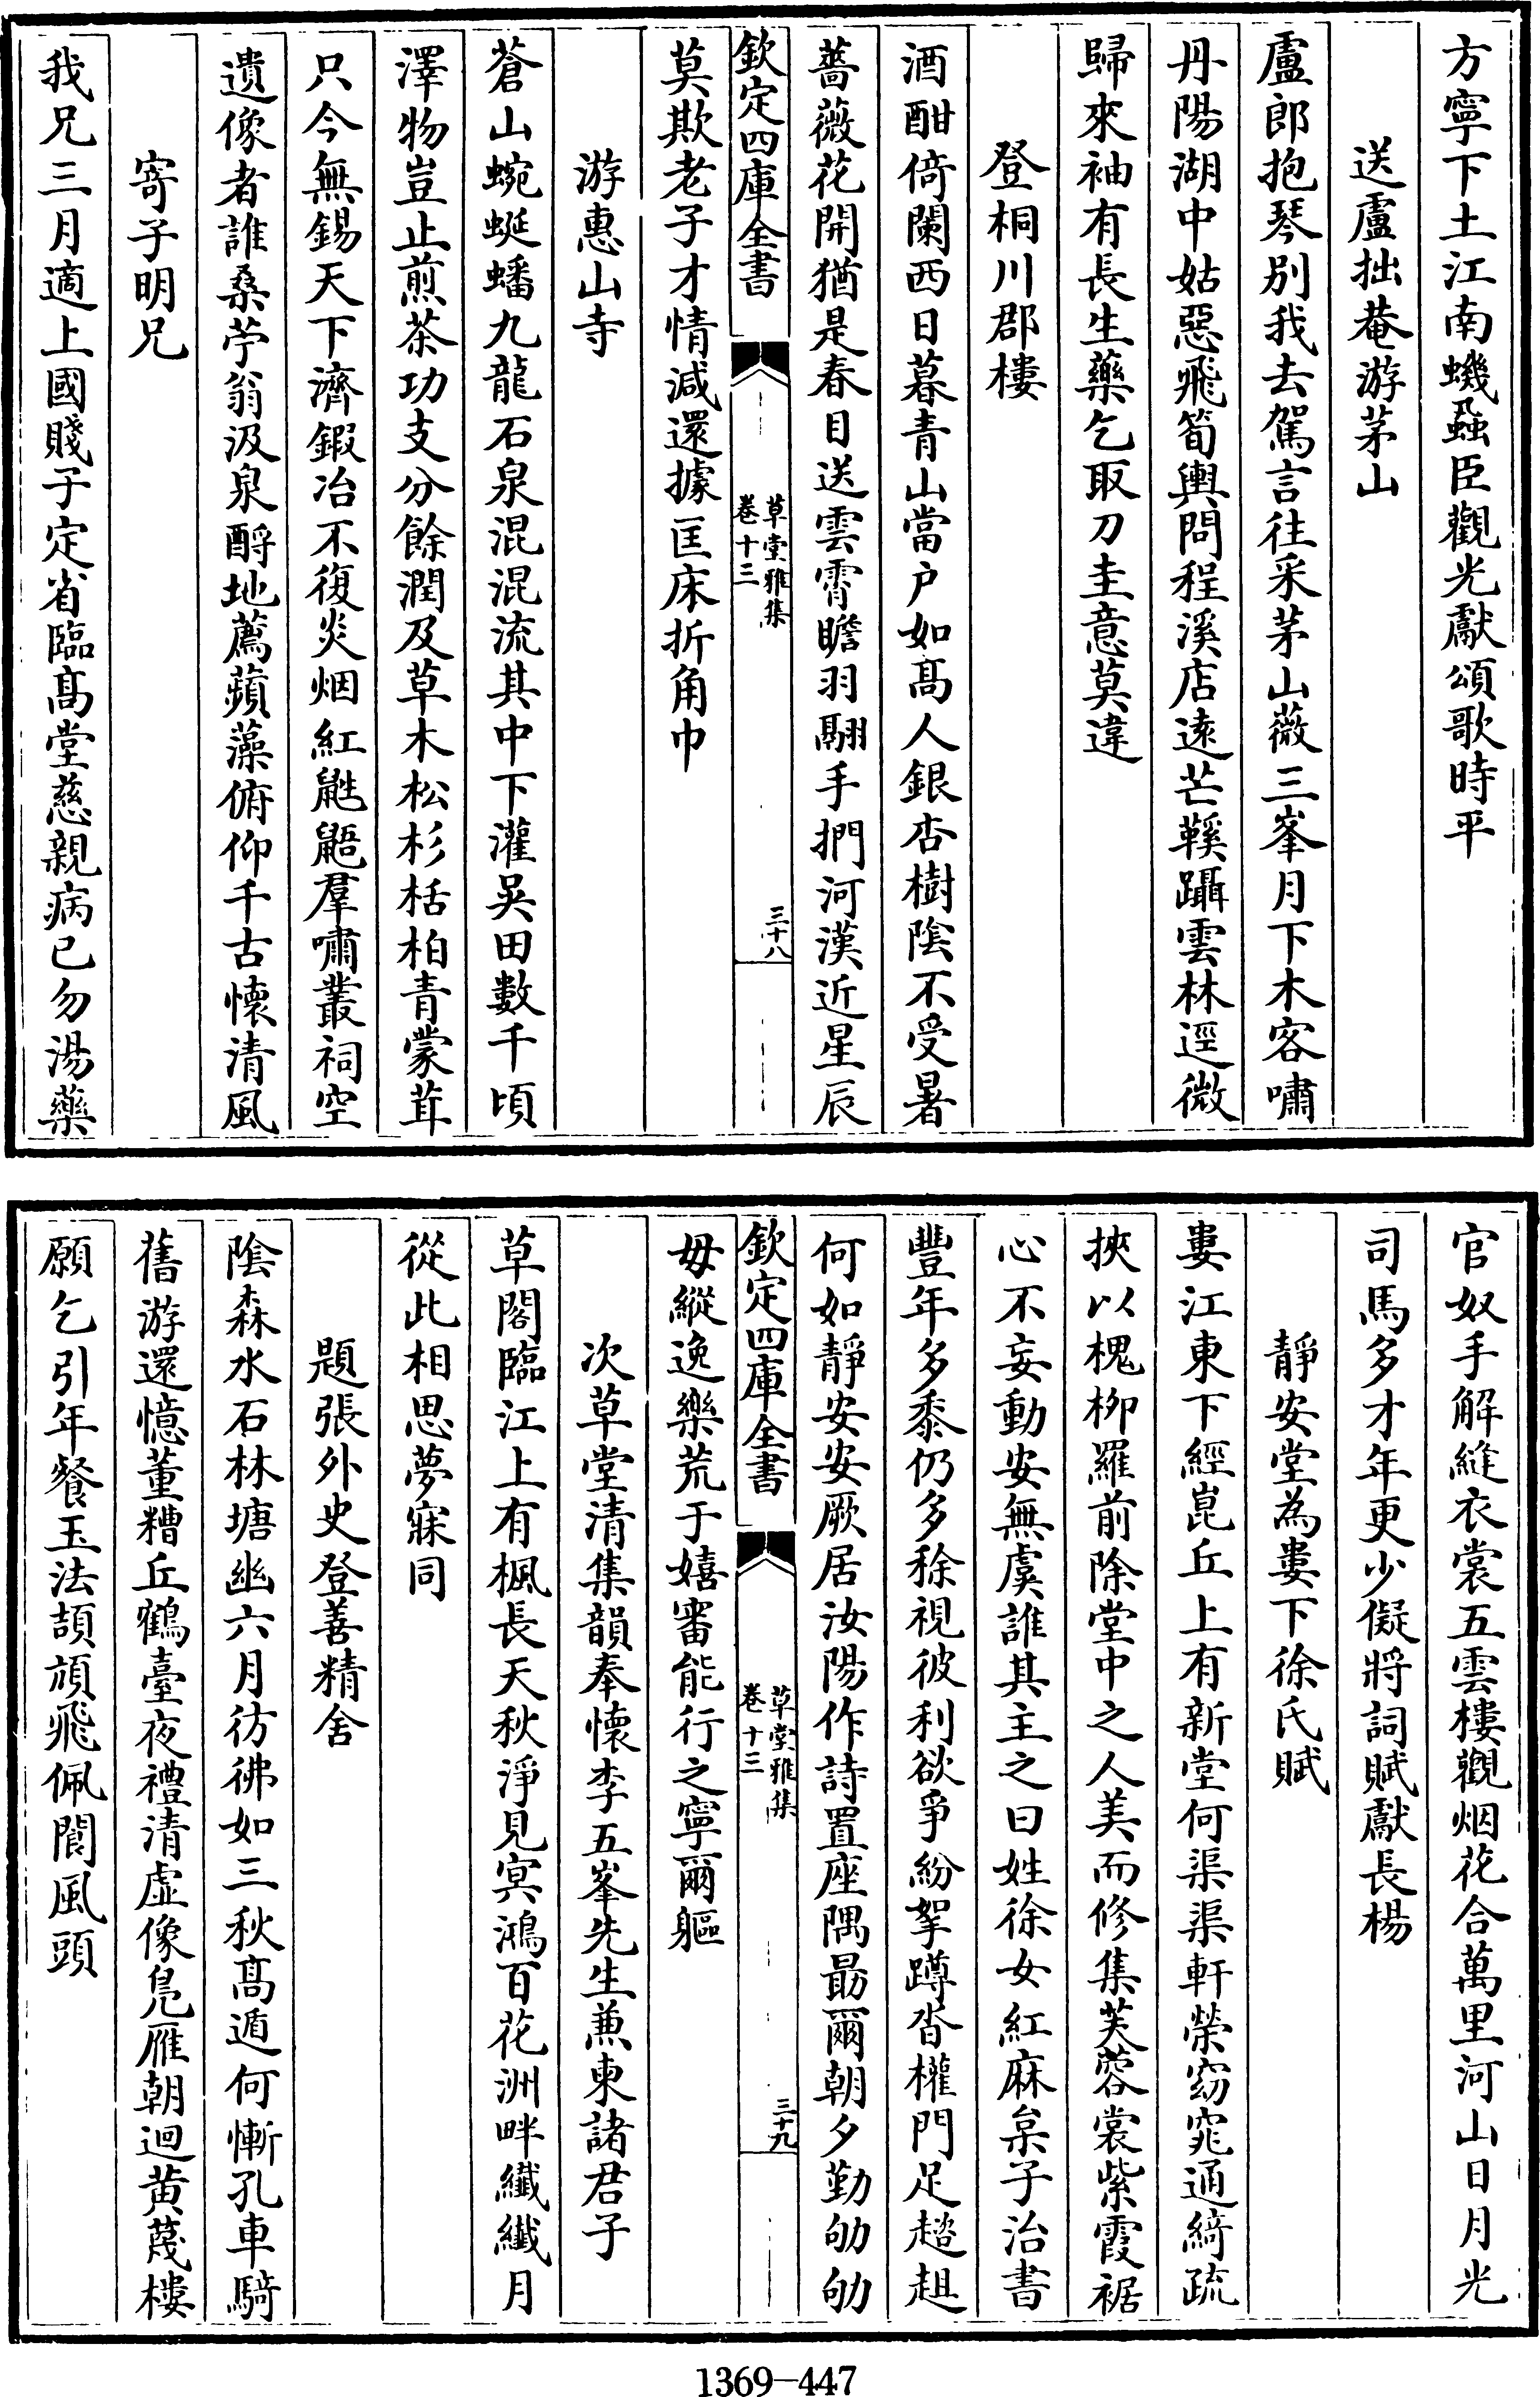 方寧下土江南蟣蝨臣觀光獻頌歌時平
送盧拙菴游茅山
盧郎抱琴别我去駕言往采茅山薇三峯月下木客嘯
丹陽湖中姑惡飛筍輿問程溪店逺芒鞵躡雲林逕微
歸來袖有長生藥乞取刀圭意莫違
登桐川郡樓
酒酣倚闌西日暮青山當户如髙人銀杏樹隂不受暑
薔薇花開猶是春目送雲霄瞻羽翮手捫河漢近星辰
欽定四庫全書
草堂雅集
卷十三
三十八
莫欺老子才情減還據匡床折角巾
游惠山寺
蒼山蜿蜒蟠九龍石泉混混流其中下灌吳田數千頃
澤物豈止煎茶功支分餘潤及草木松杉栝柏青蒙茸
只今無錫天下濟鍜冶不復炎烟紅鼪鼯羣嘯叢祠空
遺像者誰桑苧翁汲泉酹地薦蘋藻俯仰千古懷清風
寄子明兄
我兄三月適上國賤子定省臨髙堂慈親病已勿湯藥
官奴手解縫衣裳五雲樓觀烟花合萬里河山日月光
司馬多才年更少儗將詞賦獻長楊
靜安堂為婁下徐氏賦
婁江東下經崑丘上有新堂何渠渠軒榮窈窕通綺疏
挾以槐柳羅前除堂中之人美而修集芙蓉裳紫霞裾
心不妄動安無虞誰其主之曰姓徐女紅麻枲子治書
豐年多黍仍多稌視彼利欲爭紛挐蹲沓權門足趑趄
何如靜安安厥居汝陽作詩置座隅勗爾朝夕勤劬劬
欽定四庫全書
草堂雅集
卷十三
三十九
毋縱逸樂荒于嬉審能行之寧爾軀
次草堂清集韻奉懷李五峯先生兼柬諸君子
草閣臨江上有楓長天秋淨見冥鴻百花洲畔纖纖月
從此相思夢寐同
題張外史登善精舍
隂森水石林塘幽六月彷彿如三秋髙遁何慚孔車騎
舊游還憶董糟丘鶴臺夜禮清虛像鳬雁朝迴黄蔑樓
願乞引年餐玉法頡頏飛佩閬風頭
1369—447